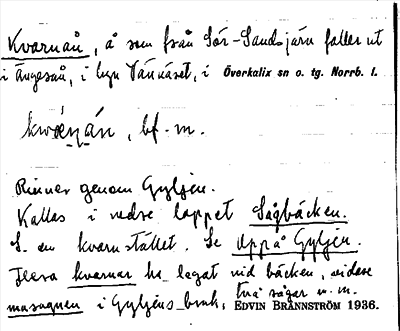 Kvarnån, å som från Sör-Sandsjärn faller ut
i Ängesån, i byn Vännäset, i Överkalix sn o. tg. Norrb. l.
bf. m.
Rinner genom Gyljen.
Kallas i nedre loppet Sågbäcken.
S. en kvarnstället. Se Uppå Gyljen.
Flera kvarnar ha legat vid bäcken, vidare
masugnen i Gyljens bruk, två sågar m. m.
EDVIN BRÄNNSTRÖM 1936.